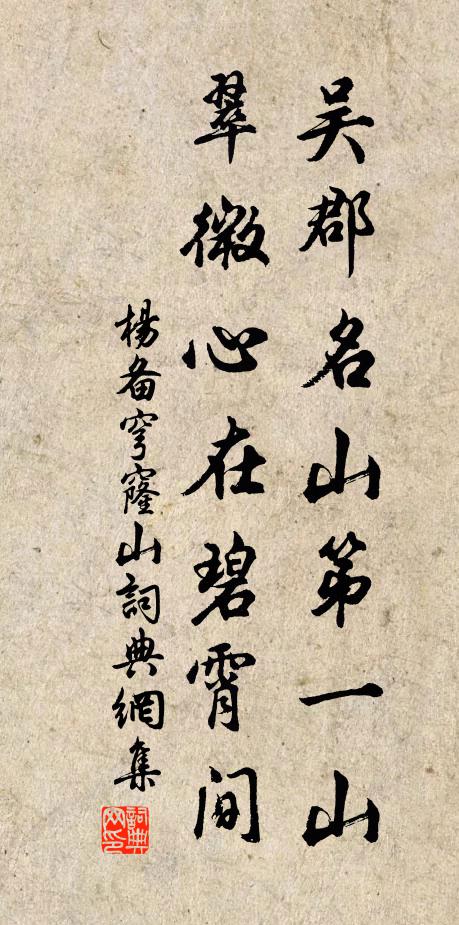 吴郡名山第一山
翠微心在碧霄间
杨备穹窿山詞典網集
詞典网印